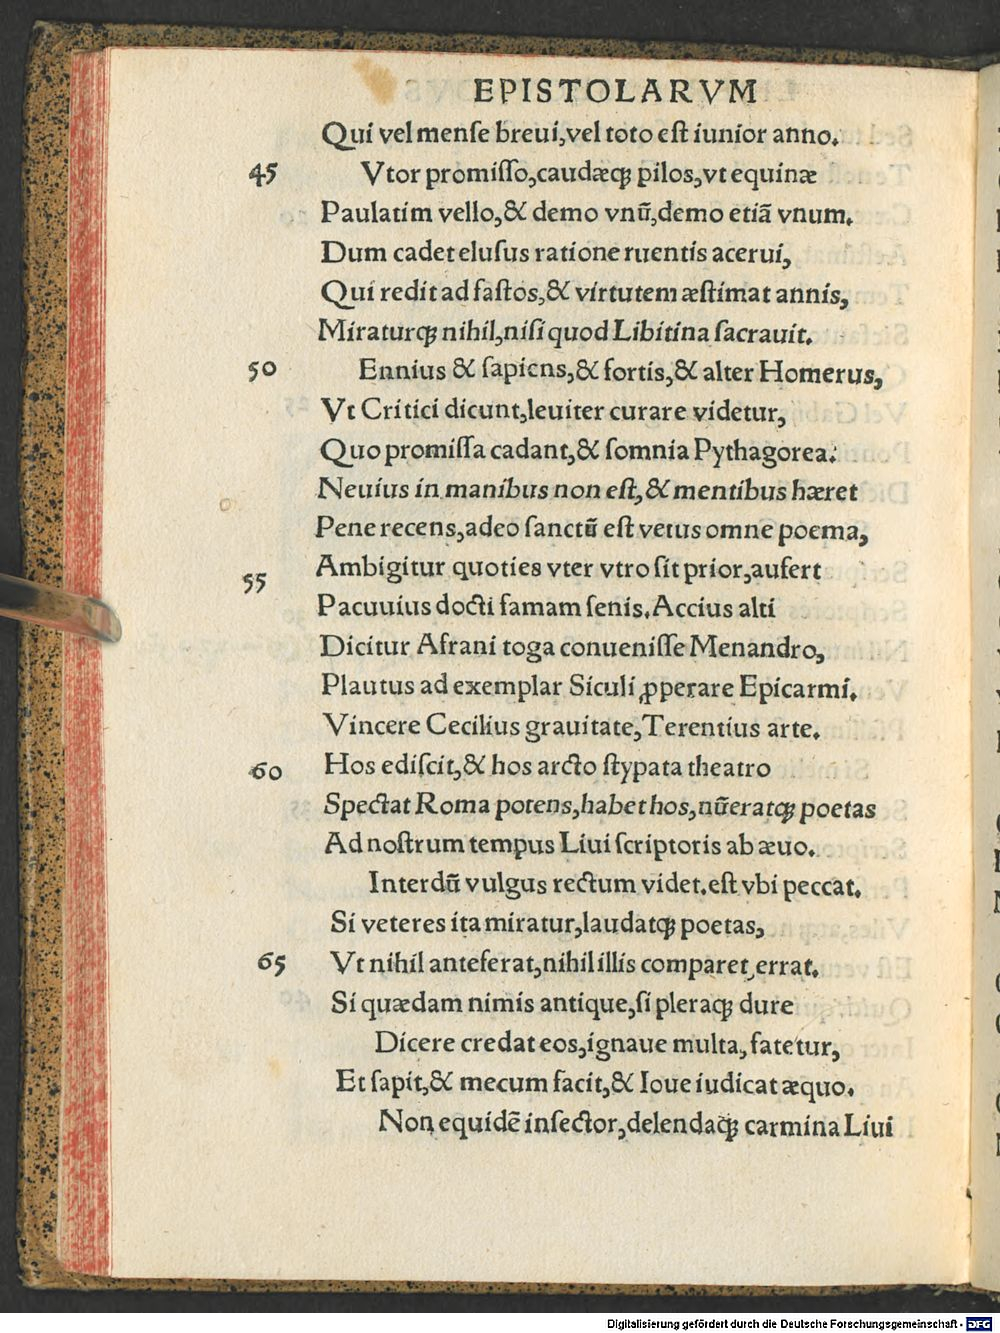 EPISTOLARVM
Qui vel menſe breui, vel toto eſt iunior anno.
45 Vtor promiſſo, caudæqꝫ pilos, vt equinæ
Paulatim vello, & demo vnū, demo etiā vnum.
Dum cadet eluſus ratione ruentis acerui,
Qui redit ad faſtos, & virtutem æſtimat annis,
Miraturqꝫ nihil, niſi quod Libitina ſacrauit.
50 Ennius & ſapiens, & fortis, & alter Homerus,
Vt Critici dicunt, leuiter curare videtur,
Quo promiſſa cadant, & ſomnia Pythagorea.
Neuius in manibus non eſt, & mentibus hæret
Pene recens, adeo ſanctū eſt vetus omne poema,
55 Ambigitur quoties vter vtro ſit prior, aufert
Pacuuius docti famam ſenis. Accius alti
Dicitur Afrani toga conueniſſe Menandro,
Plautus ad exemplar Siculi ꝓperare Epicarmi.
Vincere Cecilius grauitate, Terentius arte.
60 Hos ediſcit, & hos arcto ſtypata theatro
Spectat Roma potens, habet hos, nūeratqꝫ poetas
Ad noſtrum tempus Liui ſcriptoris ab æuo.
Interdū vulgus rectum videt. eſt vbi peccat.
Si veteres ita miratur, laudatqꝫ poetas,
65 Vt nihil anteferat, nihil illis comparet, errat.
Si quædam nimis antique, ſi pleraqꝫ dure
Dicere credat eos, ignaue multa, fatetur,
Et ſapit, & mecum facit, & Ioue iudicat æquo.
Non equidē inſector, delendaqꝫ carmina Liui
Digitalisierung gefördert durch die Deutsche Forschungsgemeinschaft - DFG